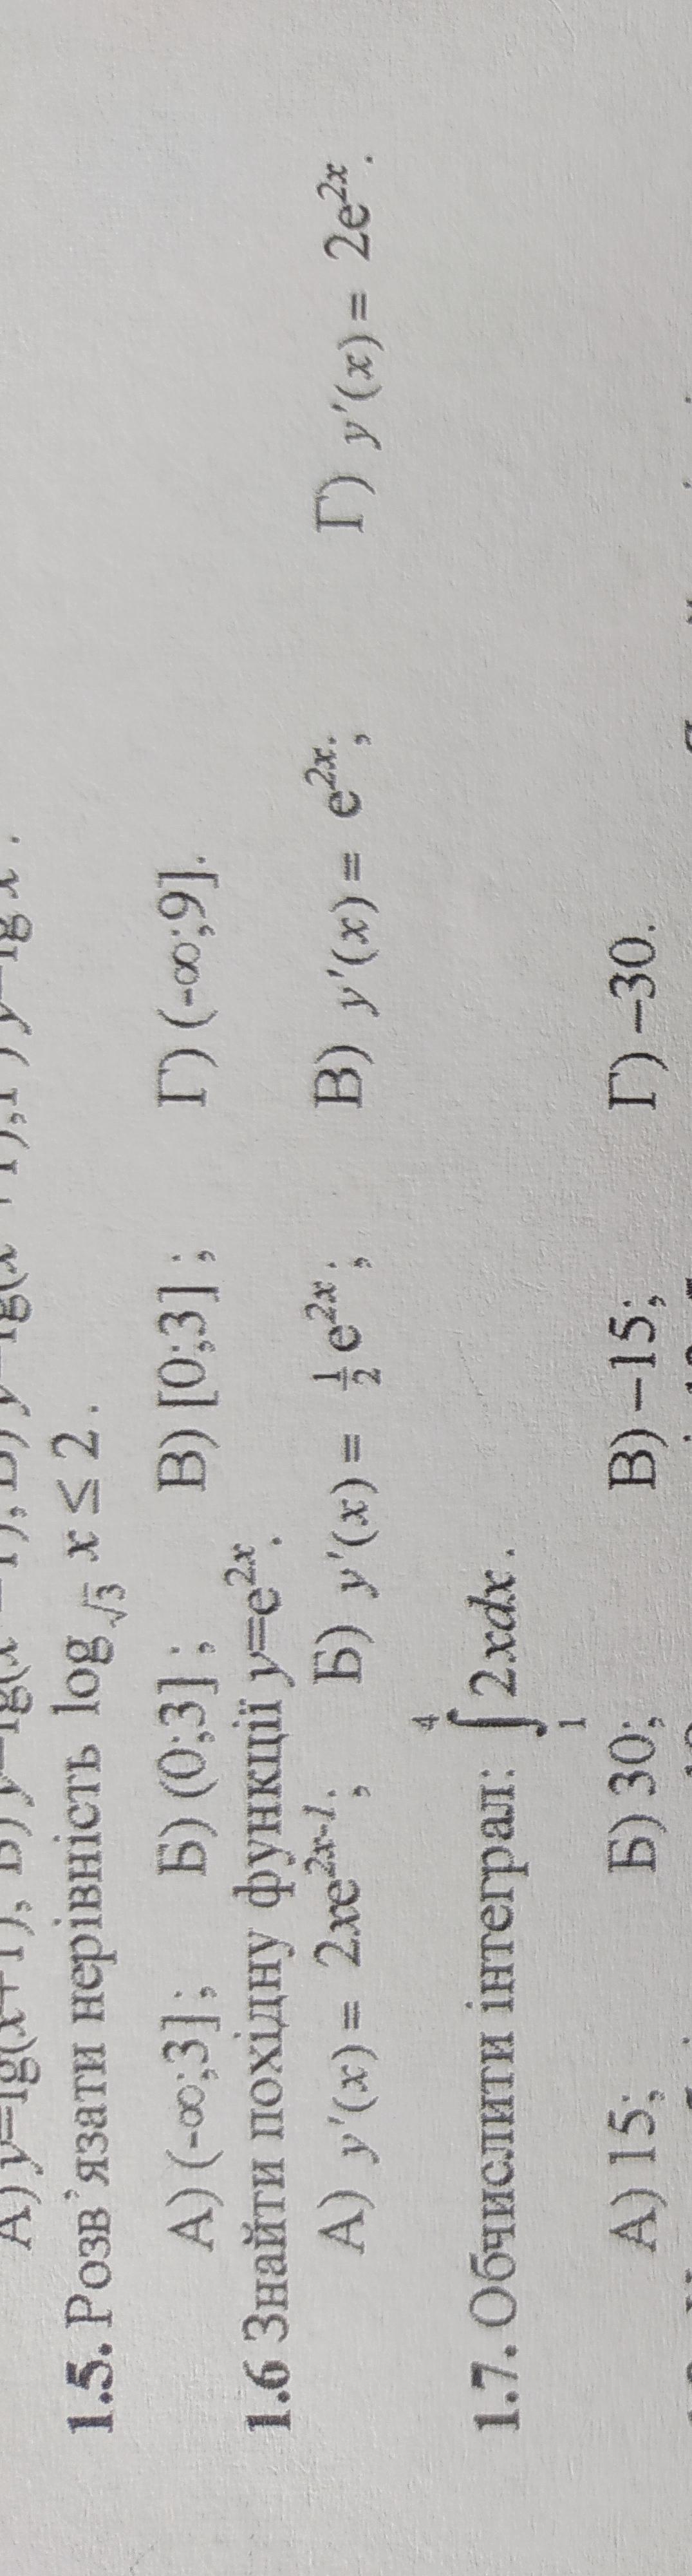 1.5. Розв'язати нерівність log√3 x ≤ 2.
А) (-∞;3]; Б) (0;3]; В) [0;3]; Г) (-∞;9].
1.6 Знайти похідну функції y=e^2x.
А) y'(x) = 2xe^2x-1; Б) y'(x) = 1/2 e^2x; В) y'(x) = e^2x; Г) y'(x) = 2e^2x.
1.7. Обчислити інтеграл: ∫₁⁴ 2xdx.
А) 15; Б) 30; В) –15; Г) –30.